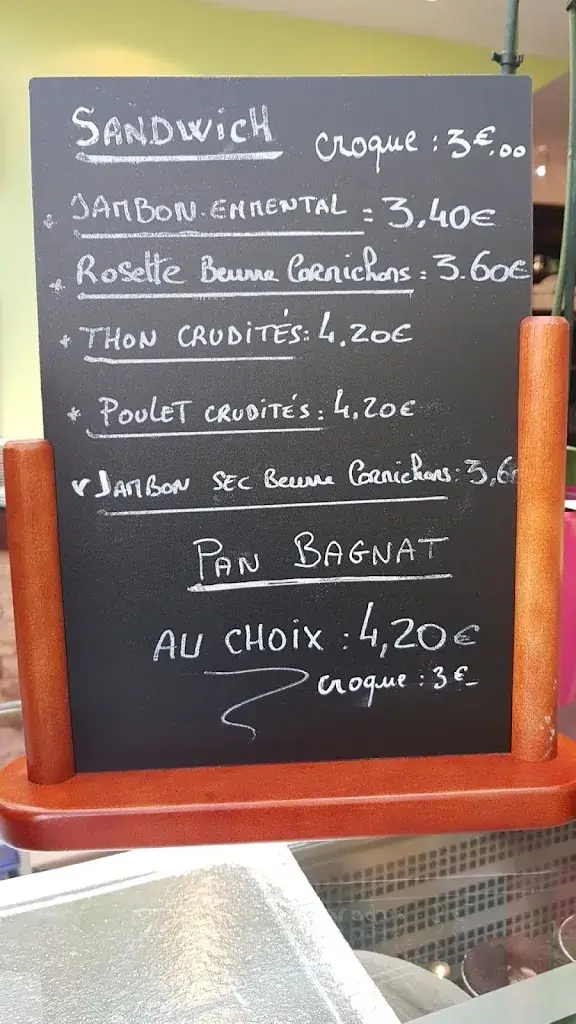 SANDWiCH croque : 3€.00
* JAMBON-EMMENTAL = 3,40€
* Rosette Beurre Cornichons = 3.60€
* THON CRUDITÉS: 4,20€
* POULET CRUDITÉS : 4,20€
JAMBON SEC Beurre Cornichons : 3,6
PAN BAGNAT
AU CHOiX : 4,20€
croque : 3€_